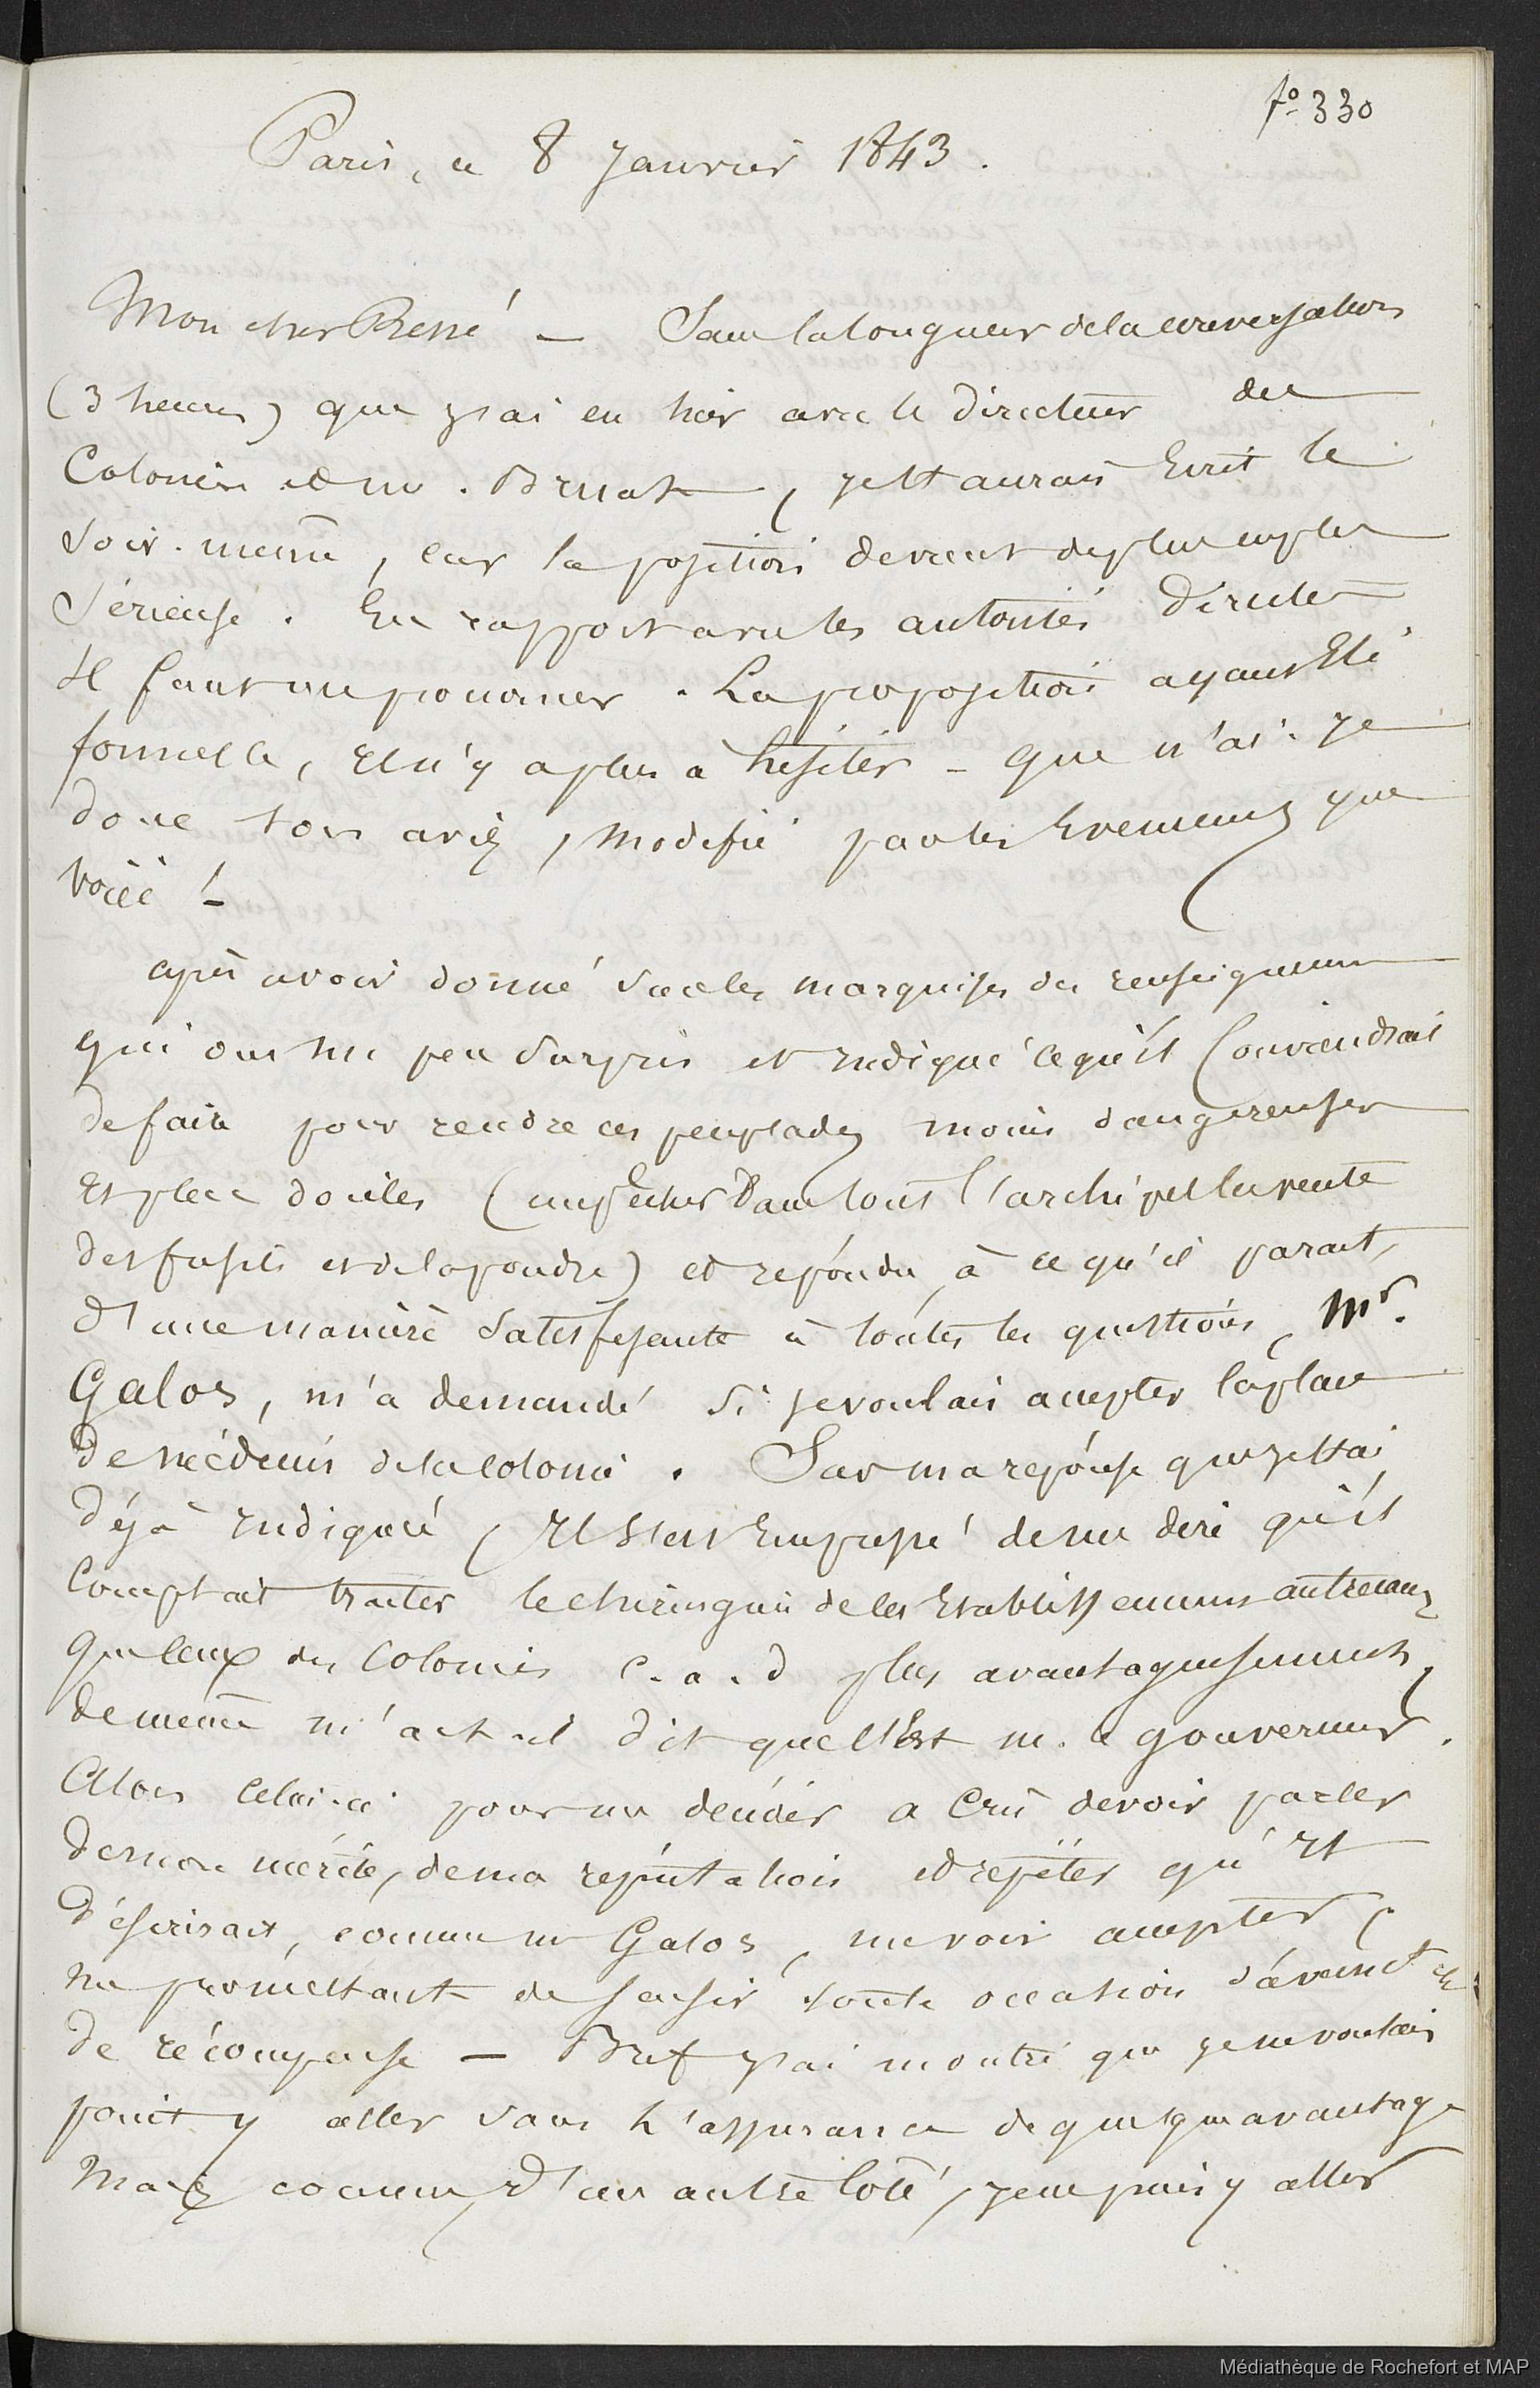 fo 330
Paris, ce 8 Janvier 1843.
Mon cher René — Sans la longueur de la conversation
(3 heures) que j'ai eu hier avec le directeur des
Colonies et m. Bruat, je t'aurais Ecrit le
soir-même, car la position devient de plus en plus
sérieuse. En rapport avec les autorités directes
Il faut me prononcer. La proposition ayant Eté
formelle, Il n'y a plus à hésiter — que n'ai-je
donc ton avis, modifié par les Evenemens que
voici !—
après avoir donné sur les marquises des renseignemens
qui ont un peu surpris et Indiqué ce qu'il Conviendrait
de faire pour rendre ces peuplades moins dangereuses
Et plus dociles (empêcher dans tout l'archipel la vente
des fusils et de la poudre) et répondu, à ce qu'il parait,
d'une manière satisfesante à toutes les questions, Mr.
Galos, m'a demandé si je voulais accepter la place
de médecin de la colonie. Sur ma réponse que je t'ai
déjà Indiqué, Il s'est Empressé de me dire qu'il
Comptait traiter le chirurgien de ces Etablissemens autrement
que ceux des Colonies c.a.d plus avantageusement,
de même m'a-t-il dit que l'Est m. le gouverneur.
Alors celui-ci pour me décider a Crû devoir parler
de mon mérite, de ma réputation et répéter qu'Il
désirait, comme m Galos, me voir accepter,
me promettant de saisir toute occasion d'avanct et
de récompense — Bref j'ai montré que je ne voulais
point y aller sans l'assurance de quelque avantage
Mais comme, d'un autre Coté, je ne puis y aller
Médiathèque de Rochefort et MAP